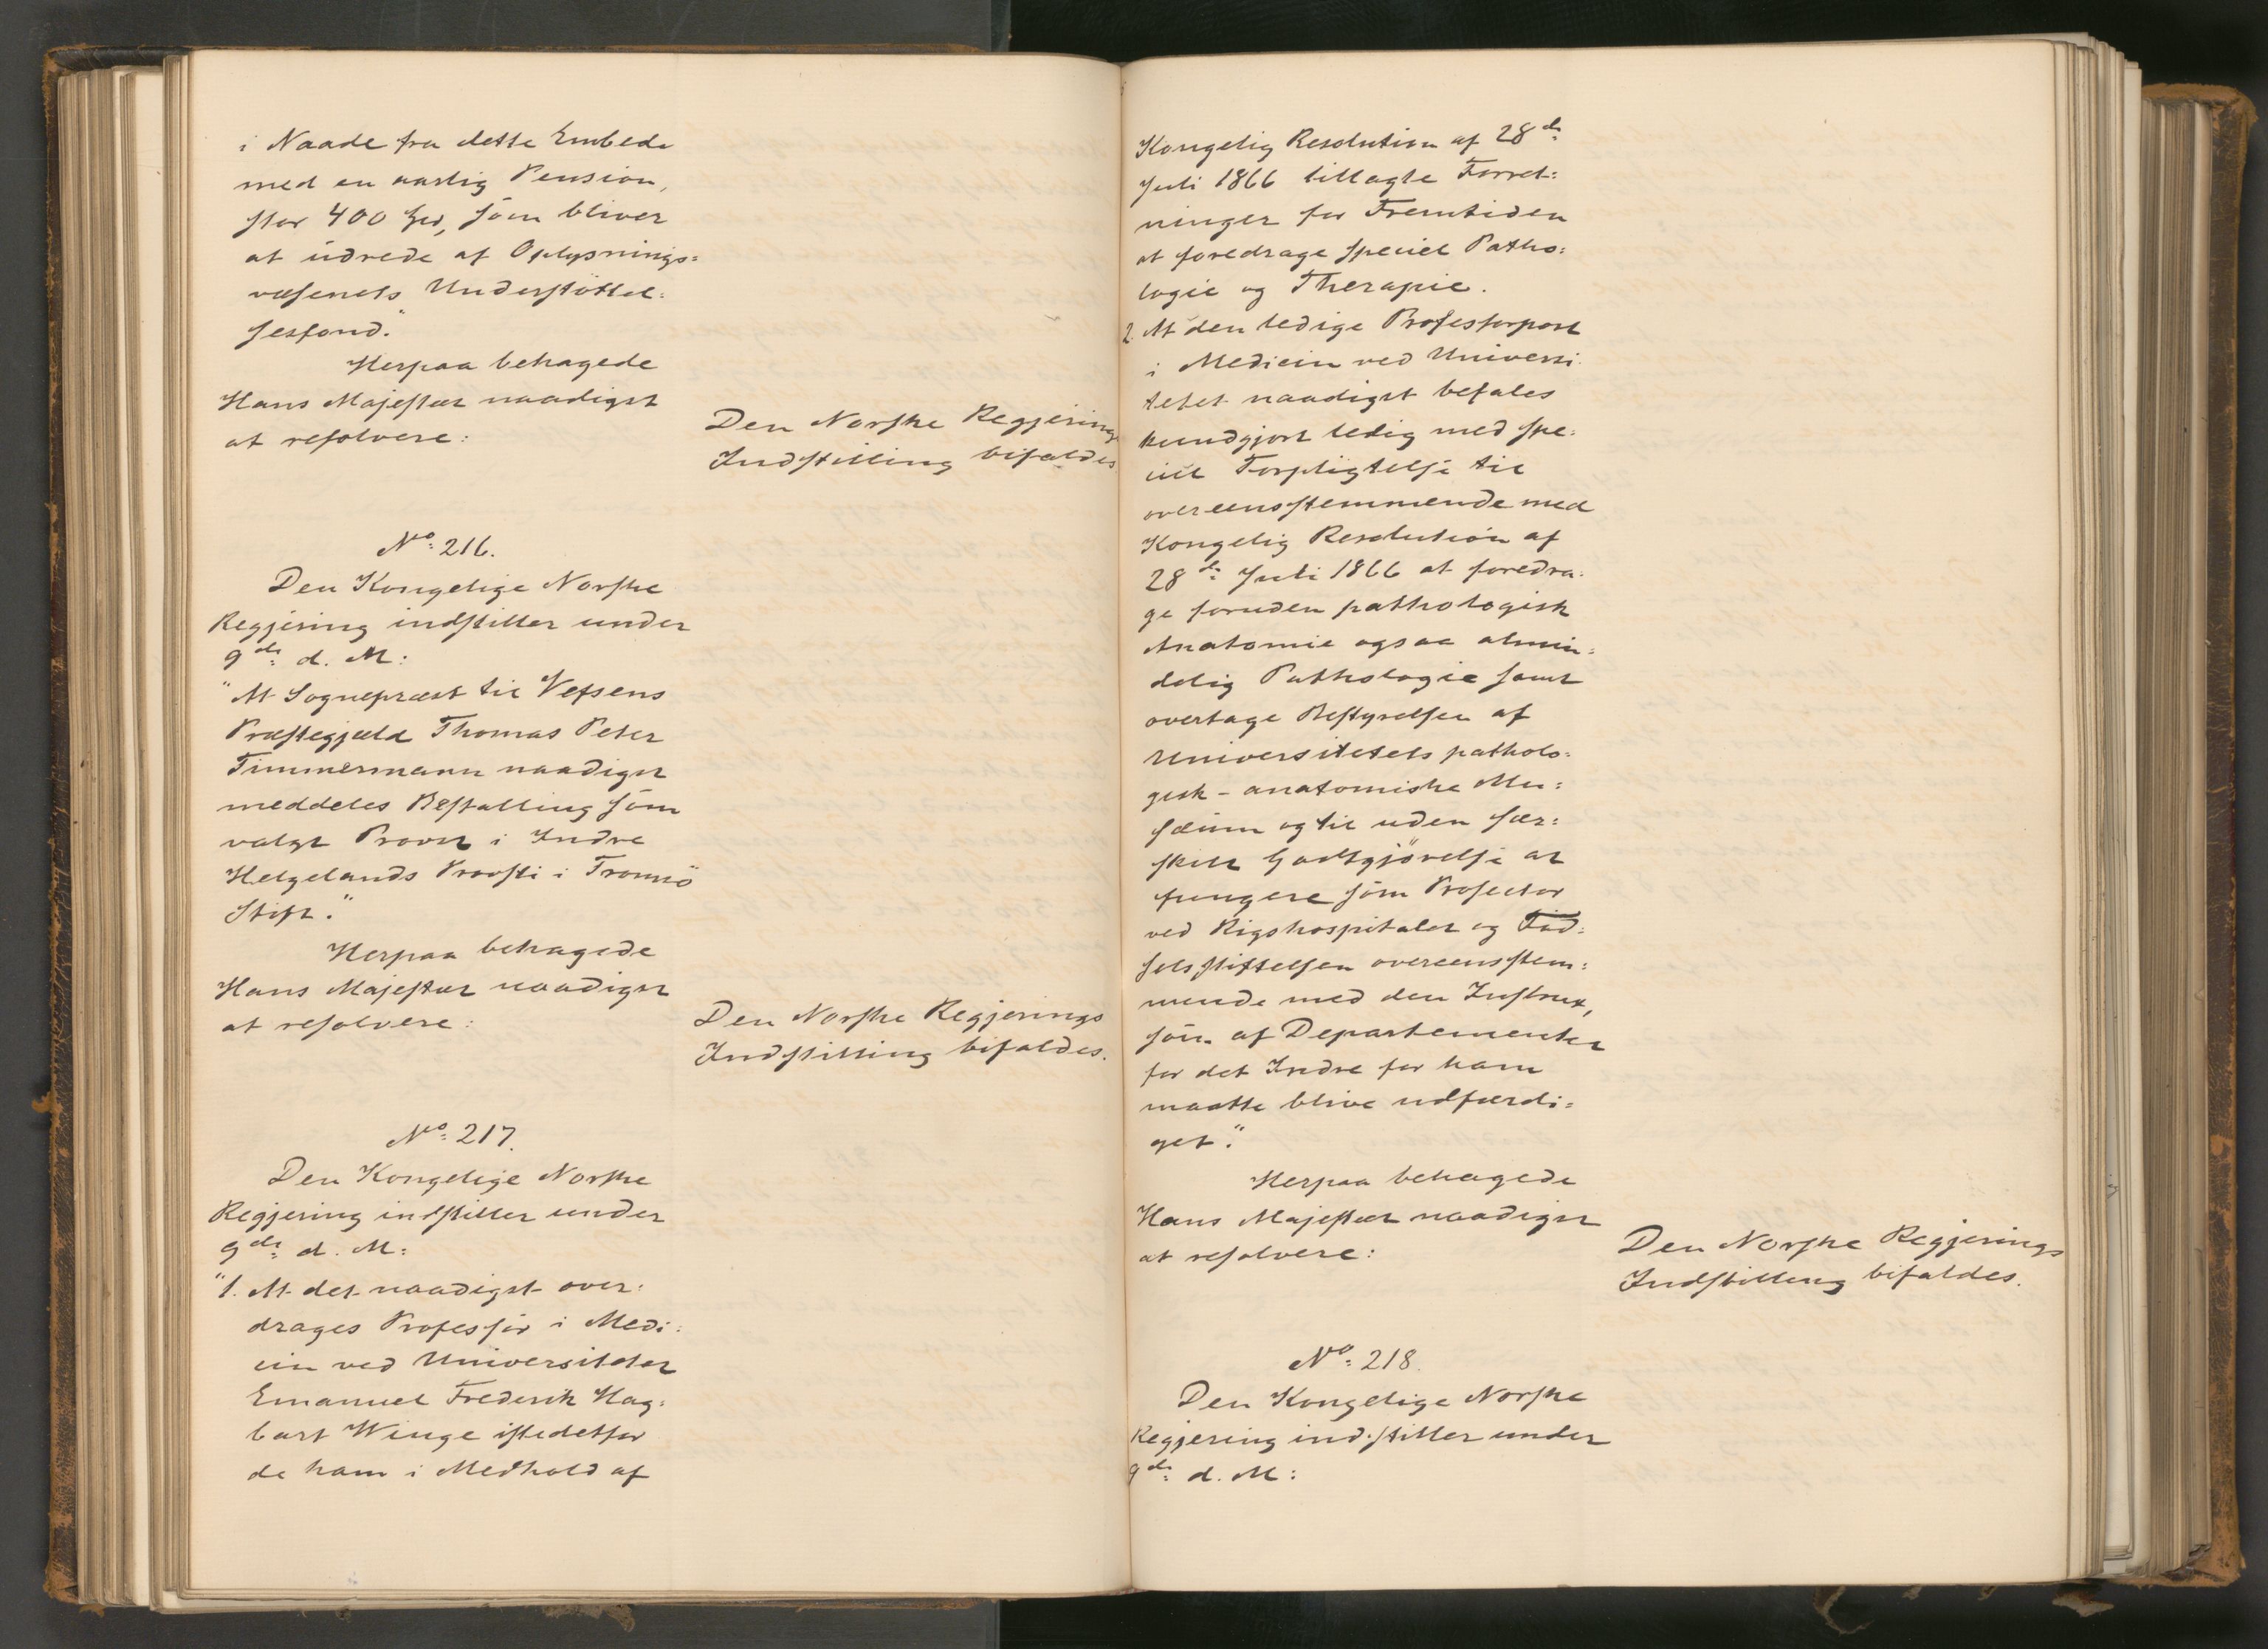 i Naade fra dette Embede
med en aarlig Pension,
stor 400 Spd, som bliver
at udrede af Oplysnings=
væsenets Understøttel=
sesfond."
Herpaa behagede
Hans Majestæt naadigst
at resolvere:
Den Norske Regjerings
Indstilling bifaldes
No: 216.
Den Kongelige Norske
Regjering indstiller under
9de: d. M:
"At Sognepræst til Vefsens
Præstegjæld Thomas Peter
Timmermann naadigst
meddeles Bestalling som
valgt Provst i Indre
Helgelands Provsti i Tromsø
Stift."
Herpaa behagede
Hans Majestæt naadigst
at resolvere:
Den Norske Regjerings
Indstilling bifaldes.
No: 217.
Den Kongelige Norske
Regjering indstiller under
9de: d. M:
"1. At det naadigst over=
drages Professor i Medi=
cin ved Universitetet
Emanuel Frederik Hag=
bart Winge istedetfor
de ham i Medhold af
Kongelig Resolution af 28de:
Juli 1866 tillagte Forret=
ninger for Fremtiden
at foredrage speciel Patho=
logie og Therapie.
2. At den ledige Professorpost
i Medicin ved Universi=
tetet naadigst befales
kundgjort ledig med spe=
ciel Forpligtelse til
overeensstemmende med
Kongelig Resolution af
28de: Juli 1866 at foredra=
ge foruden pathologisk
Anatomie ogsaa almin=
delig Pathologie samt
overtage Bestyrelsen af
Universitetets patholo=
gisk-anatomiske Mu=
sæum og til uden sær=
skilt Godtgjørelse at
fungere som Prosector
ved Rigshospitalet og Fød=
selsstiftelsen overeensstem=
mende med den Instrux,
som af Departementet
for det Indre for ham
maatte blive udfærdi=
get."
Herpaa behagede
Hans Majestæt naadigst
at resolvere:
Den Norske Regjerings
Indstilling bifaldes.
No: 218.
Den Kongelige Norske
Regjering indstiller under
9de: d. M: